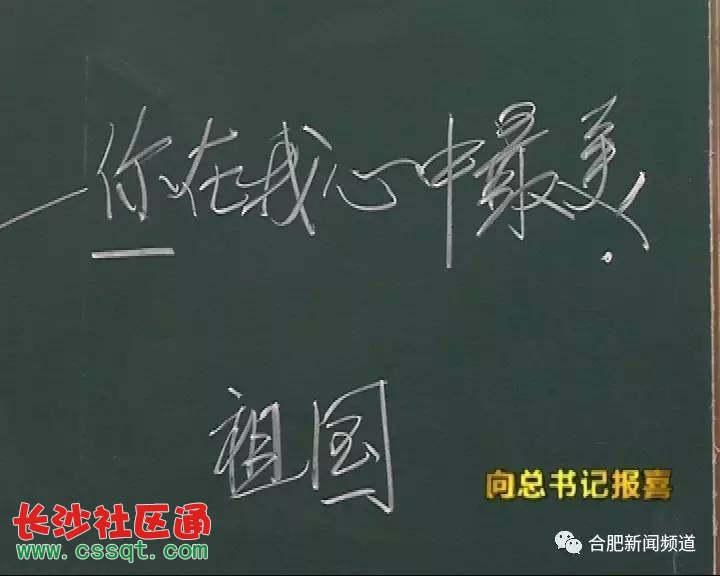 —你在我心中最美.
祖国
向总书记报喜
长沙社区通
www.cssqt.com
合肥新闻频道